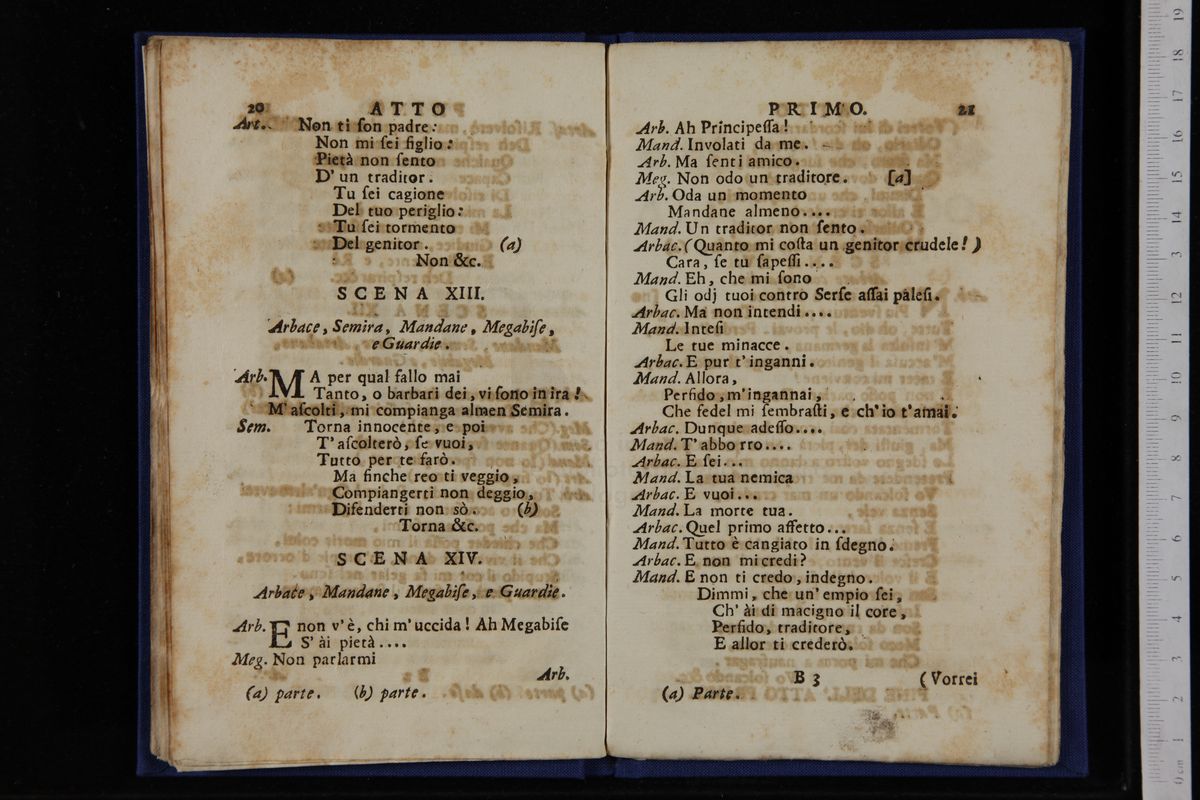 20 ATTO
Art. Non ti ſon padre:
Non mi ſei figlio:
Pietà non ſento
D' un traditor.
Tu ſei cagione
Del tuo periglio:
Tu ſei tormento
Del genitor. (a)
Non &c.
SCENA XIII.
Arbace, Semira, Mandane, Megabiſe,
e Guardie.
Arb. MA per qual fallo mai
Tanto, o barbari dei, vi ſono in ira!
M' aſcolti, mi compianga almen Semira.
Sem. Torna innocente, e poi
T' aſcolterò, ſe vuoi,
Tutto per te farò.
Ma finche reo ti veggio,
Compiangerti non deggio,
Difenderti non sò. (b)
Torna &c.
SCENA XIV.
Arbace, Mandane, Megabiſe, e Guardie.
Arb. E non v' è, chi m' uccida! Ah Megabiſe
S' ài pietà....
Meg. Non parlarmi
Arb.
(a) parte. (b) parte.
PRIMO. 21
Arb. Ah Principeſſa!
Mand. Involati da me.
Arb. Ma ſenti amico.
Meg. Non odo un traditore. [a]
Arb. Oda un momento
Mandane almeno....
Mand. Un traditor non ſento.
Arbac. (Quanto mi coſta un genitor crudele!)
Cara, ſe tu ſapeſſi....
Mand. Eh, che mi ſono
Gli odj tuoi contro Serſe aſſai paleſi.
Arbac. Ma non intendi....
Mand. Inteſi
Le tue minacce.
Arbac. E pur t' inganni.
Mand. Allora,
Perfido, m' ingannai,
Che fedel mi ſembraſti, e ch' io t' amai.
Arbac. Dunque adeſſo....
Mand. T' abbo rro....
Arbac. E ſei...
Mand. La tua nemica
Arbac. E vuoi...
Mand. La morte tua.
Arbac. Quel primo affetto...
Mand. Tutto è cangiato in ſdegno.
Arbac. E non mi credi?
Mand. E non ti credo, indegno.
Dimmi, che un' empio ſei,
Ch' ài di macigno il core,
Perfido, traditore,
E allor ti crederò.
B 3 (Vorrei
(a) Parte.
0 cm 1 2 3 4 5 6 7 8 9 10 11 12 13 14 15 16 17 18 19